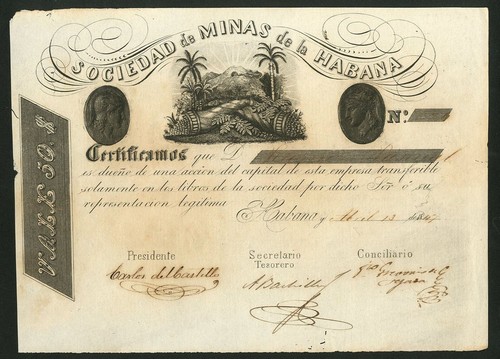 SOCIEDAD de MINAS de la HABANA
Nº
VALE 50. $
Certificamos que D
es dueño de una accion del capital de esta empresa transferible
solamente en los libros de la sociedad por dicho Sor ó su
representacion legitima
Habana y Abril 13 1847
Presidente Secretario Tesorero Conciliario
Carlos del Castillo